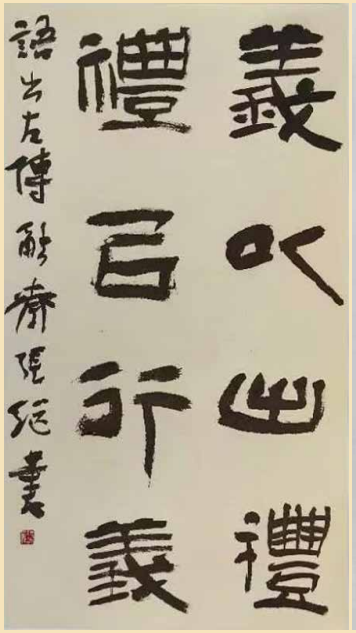 義以出禮
禮㠯行義
語出左傳齋張继書